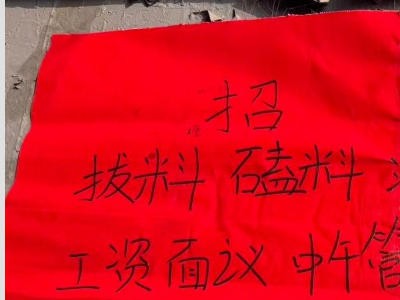 招
拔料 磕料
工资面议 中午管